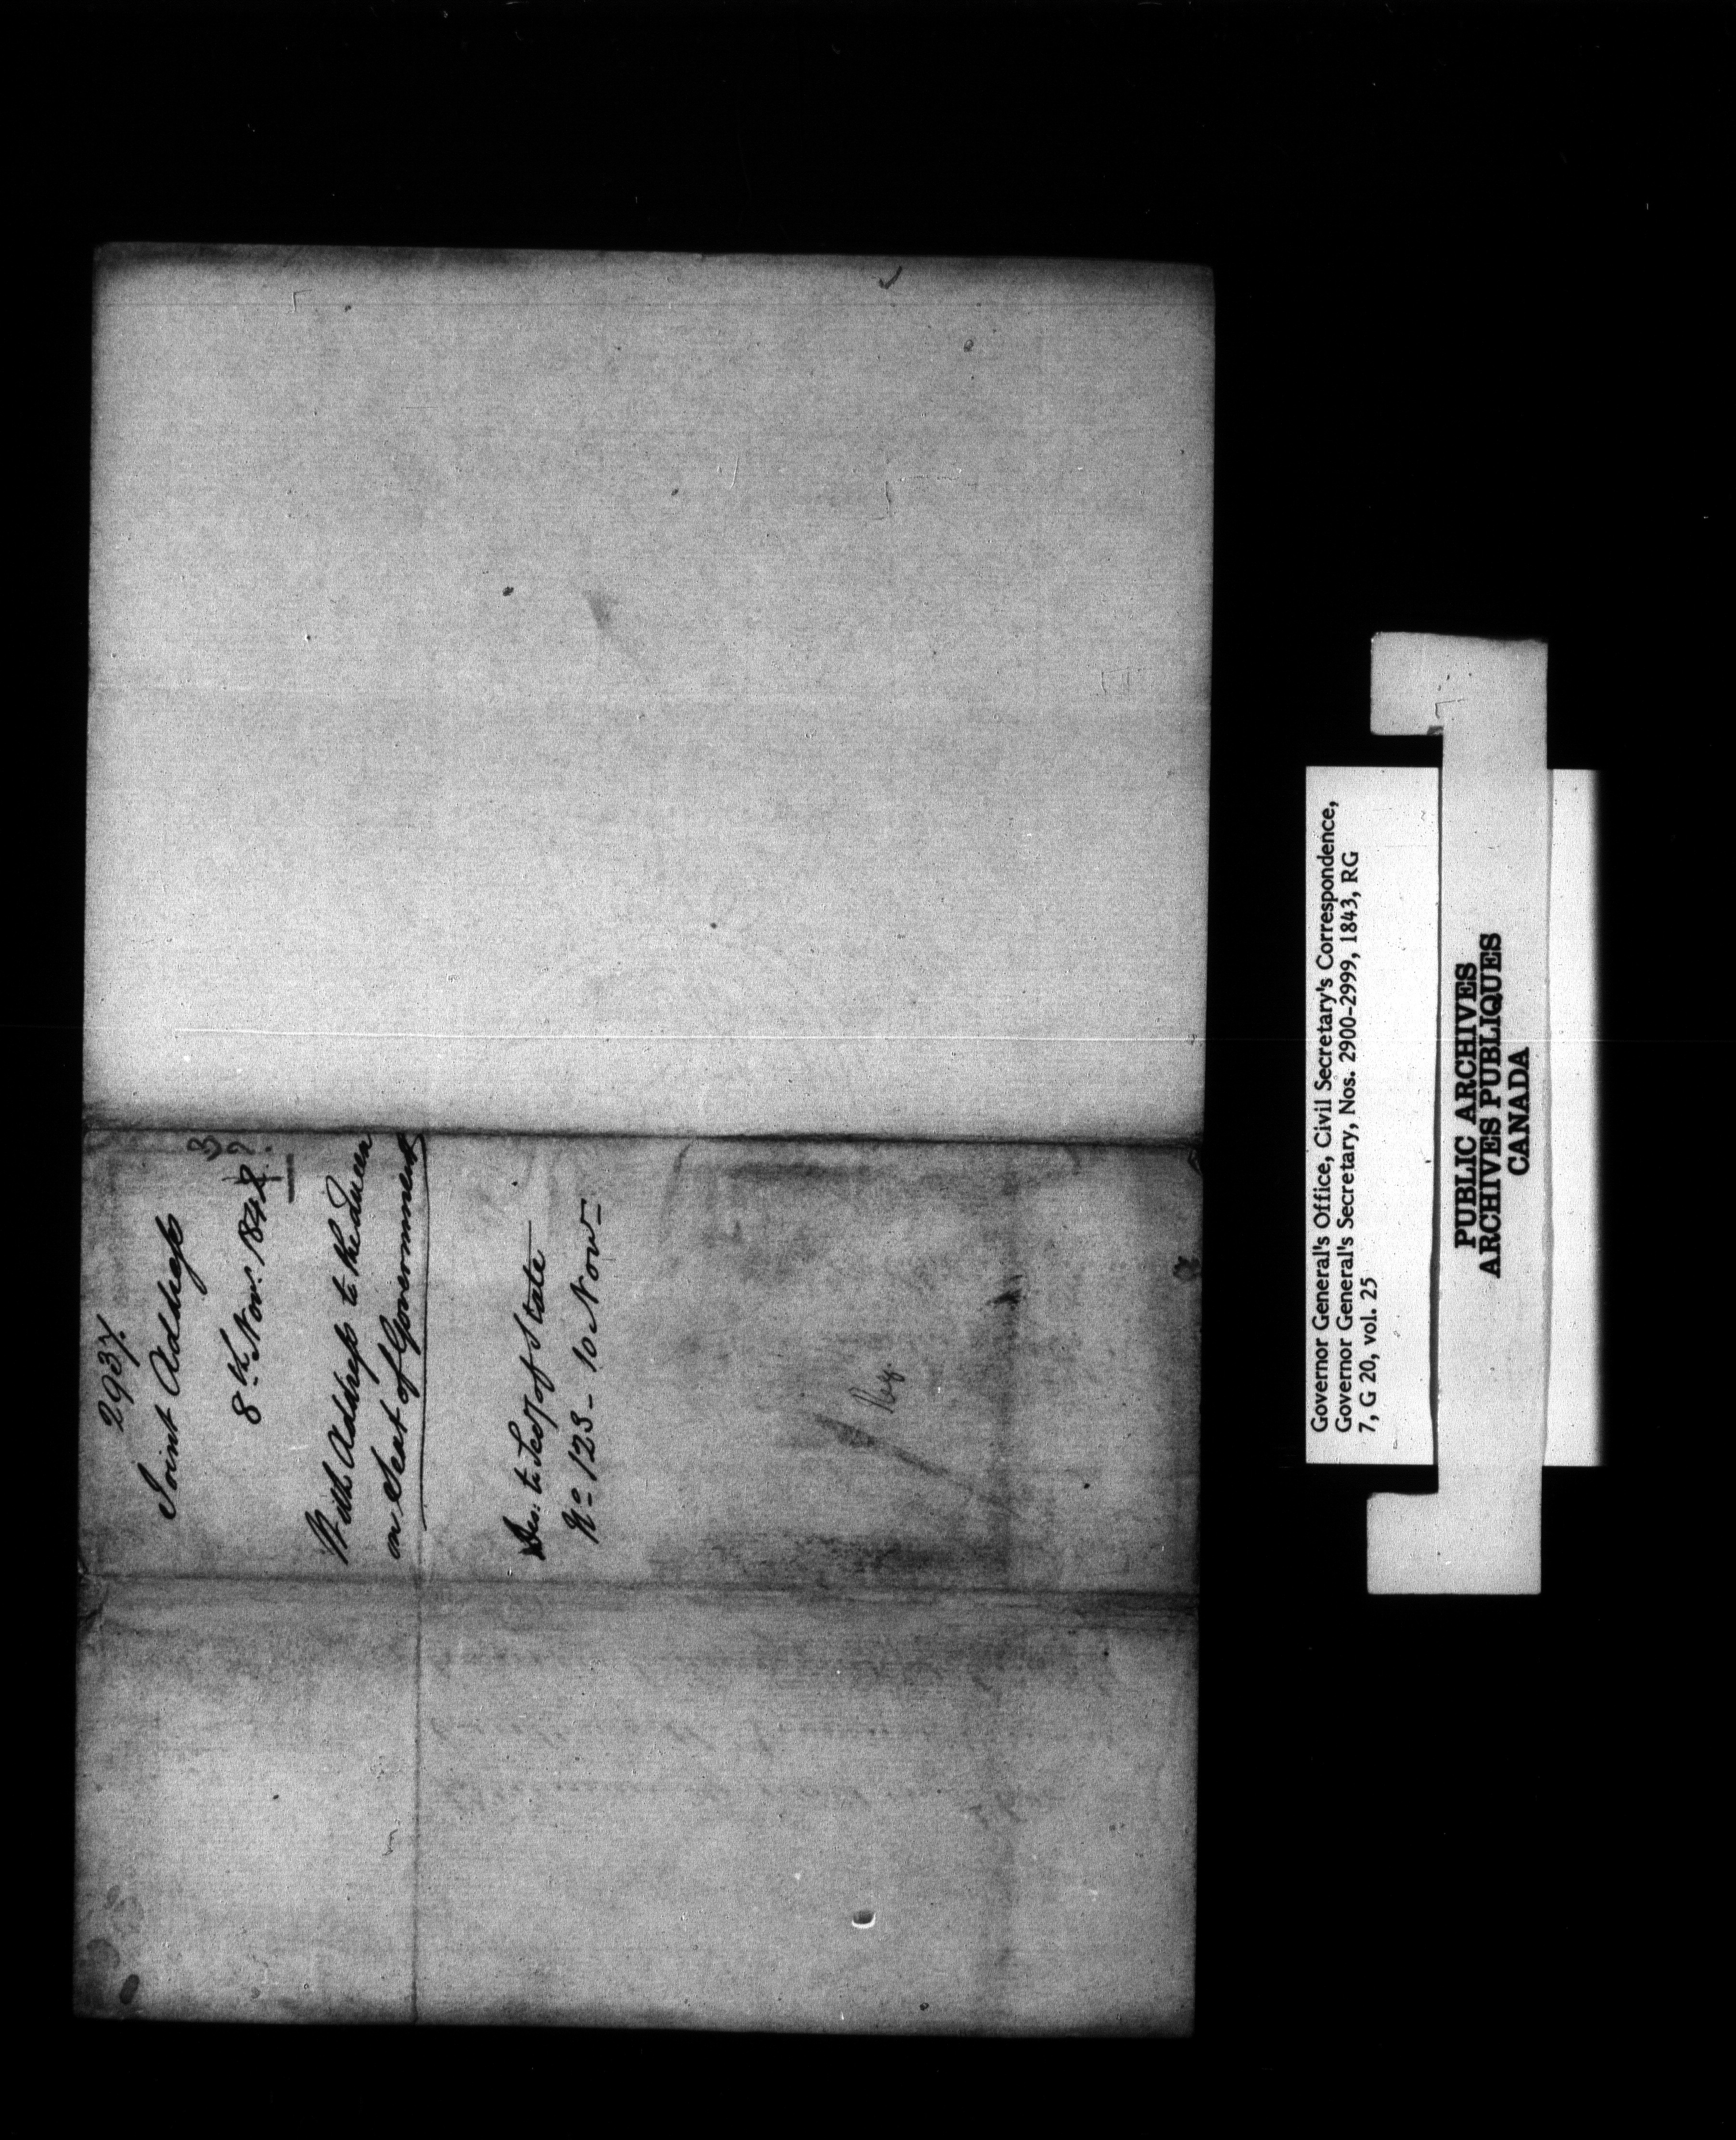 2937.
Joint Address
3
?
8th. Nov: 1842
With Address to the Queen
on Seat of Government
Des: to Secy of State
No 123 - 10 Nov -
Reg.
Governor General's Office, Civil Secretary's Correspondence,
Governor General's Secretary, Nos. 2900-2999, 1843, RG
7, G 20, vol. 25
PUBLIC ARCHIVES
ARCHIVES PUBLIQUES
CANADA